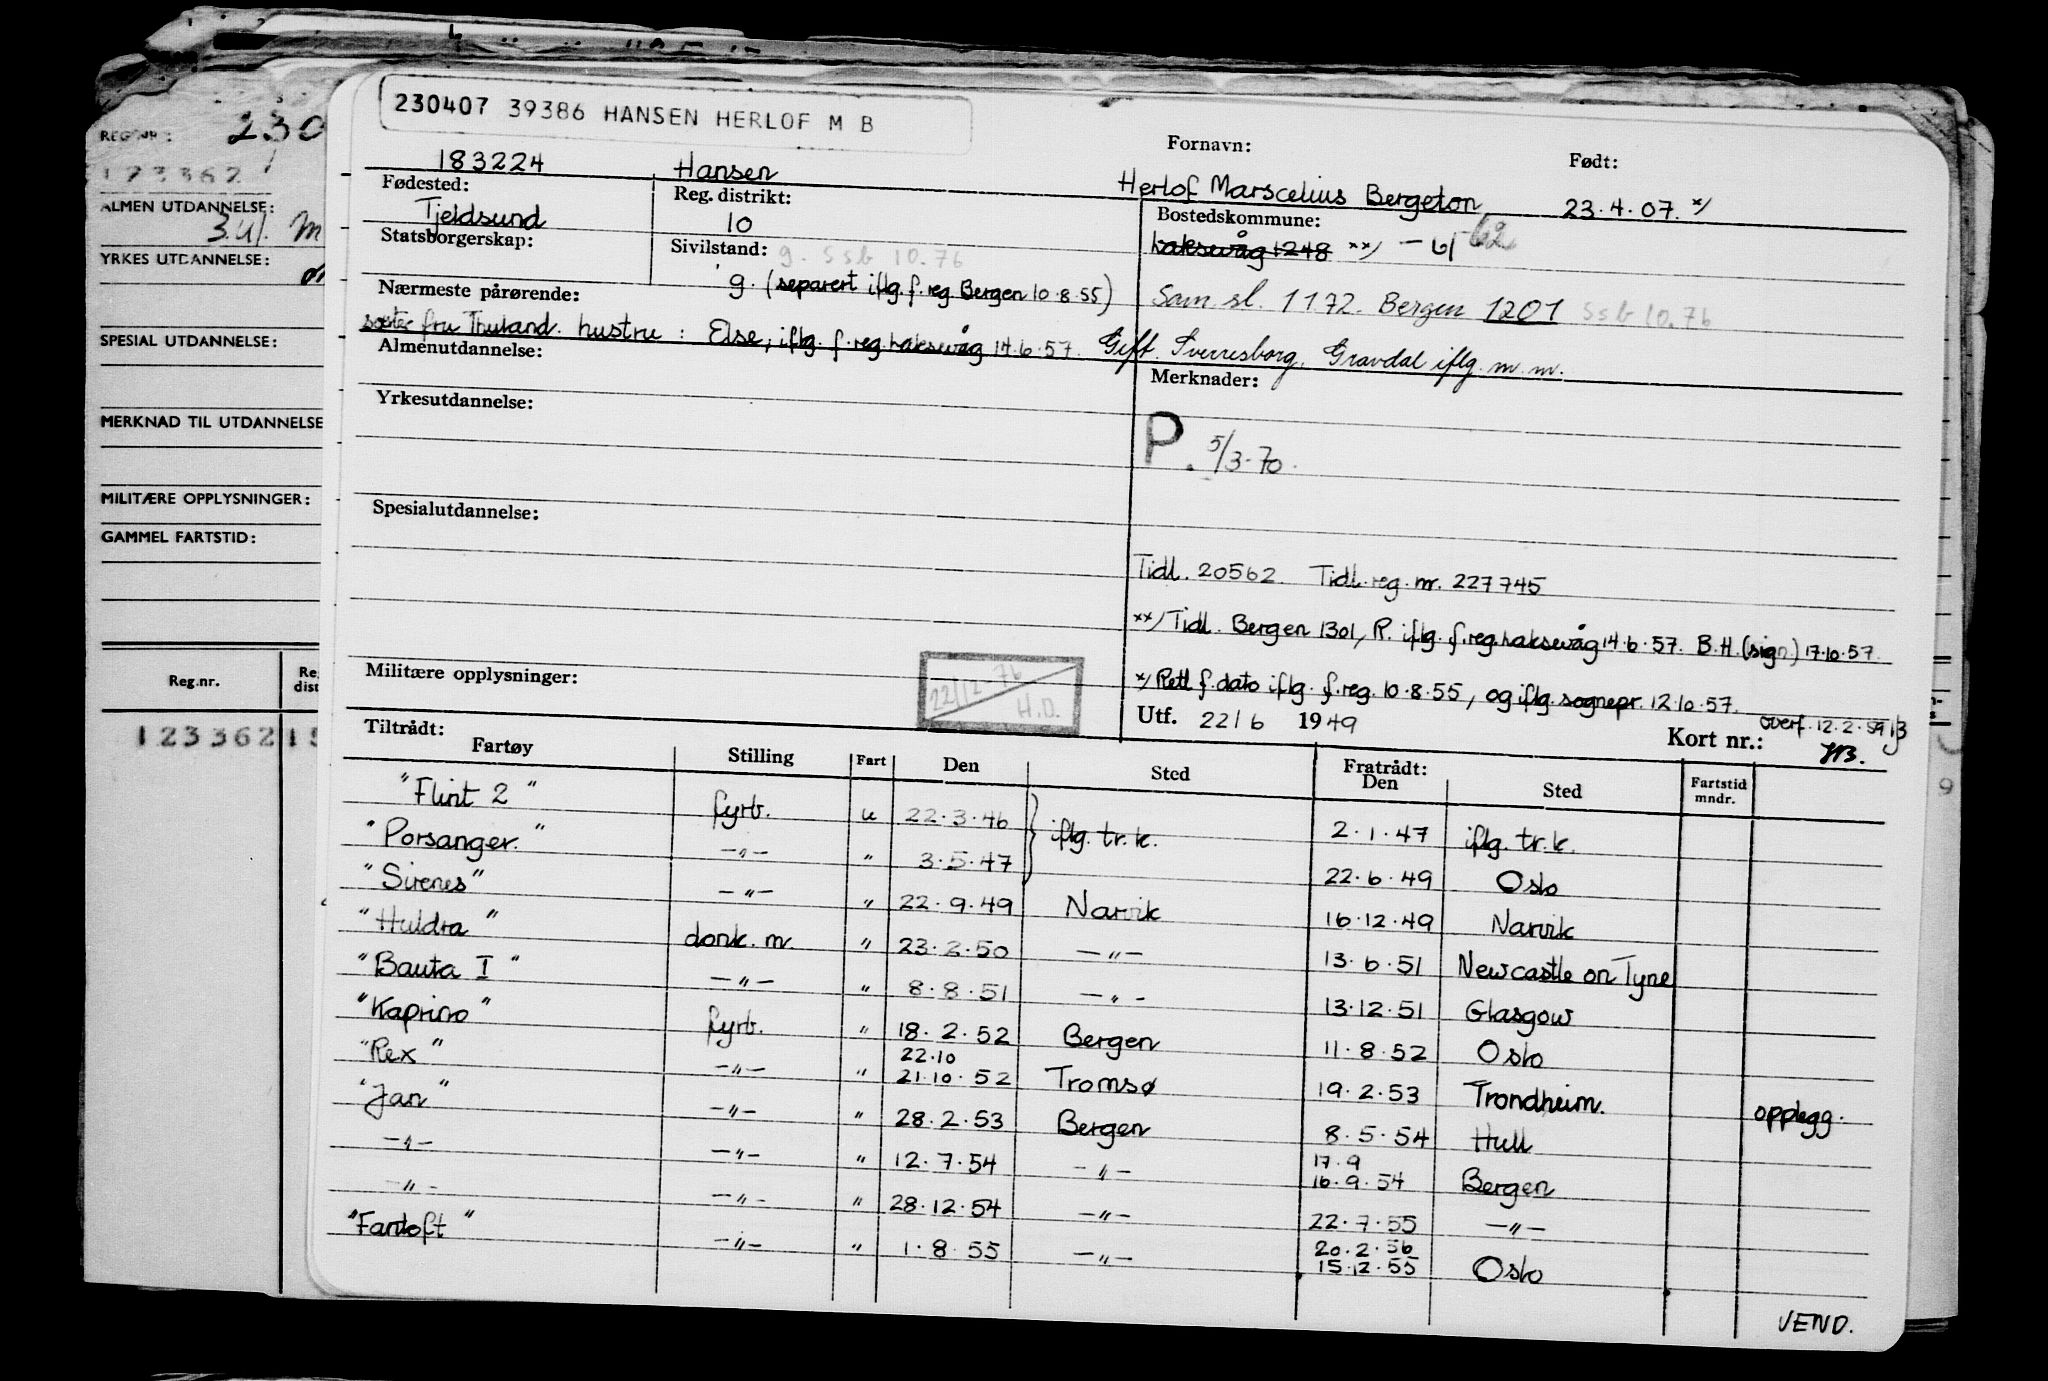 230407 39386 HANSEN HERLOF M B
REG. NR.: 230
123362
ALMEN UTDANNELSE:
YRKES UTDANNELSE:
SPESIAL UTDANNELSE:
MERKNAD TIL UTDANNELSE
MILITÆRE OPPLYSNINGER:
GAMMEL FARTSTID:
Reg.nr.
123362
Fornavn: Født:
183224 Hansen Herlof Marscelius Bergeton 23.4.07. x/
Fødested: Reg. distrikt: Bostedskommune:
Tjeldsund 10 Laksevåg 1248 xx/ - 61 62
Statsborgerskap: Sivilstand: g. SSB 10.76
g. (separert iflg. f.reg. Bergen 10.8.55) Sam. sl. 1172. Bergen 1201 SSB 10.76
Nærmeste pårørende:
søster fru Thuland. hustru: Else, iflg. f.reg. Laksevåg 14.6.57. Gift. Sverresborg, Gravdal iflg. m.m.
Almenutdannelse: Merknader:
Yrkesutdannelse:
P. 5/3-70.
Spesialutdannelse:
Tidl. 20562. Tidl. reg. nr. 227745
xx/ Tidl. Bergen 1301, P. iflg. f.reg. Laksevåg 14.6.57. B.H. (sign) 17.10.57.
Militære opplysninger: 22/12-76 H.D.
x/ Rett f.dato iflg. f.reg. 10.8.55, og iflg. sognepr. 12.10.57.
Utf. 22/6 1949 Kort nr.: overf. 12.2.59
Tiltrådt: Fratrådt:
Fartøy Stilling Fart Den Sted Den Sted Fartstid mndr.
"Flint 2" fyrb. u 22.3.46 iflg. tr.k. 2.1.47 iflg. tr.k.
"Porsanger" -"- " 3.5.47 22.6.49 Oslo
"Sirenes" -"- " 22.9.49 Narvik 16.12.49 Narvik
"Huldra" donk. m " 23.2.50 -"- 13.6.51 Newcastle on Tyne
"Bauta I" -"- " 8.8.51 -"- 13.12.51 Glasgow
"Kaprino" fyrb. " 18.2.52 Bergen 11.8.52 Oslo
"Rex" -"- " 22.10 21.10.52 Tromsø 19.2.53 Trondheim. opplegg.
"Jan" -"- " 28.2.53 Bergen 8.5.54 Hull
-"- -"- " 12.7.54 -"- 17.9 16.9.54 Bergen
-"- -"- " 28.12.54 -"- 22.7.55 -"-
"Fantoft" -"- " 1.8.55 -"- 20.2.56 15.12.55 Oslo
VEND.